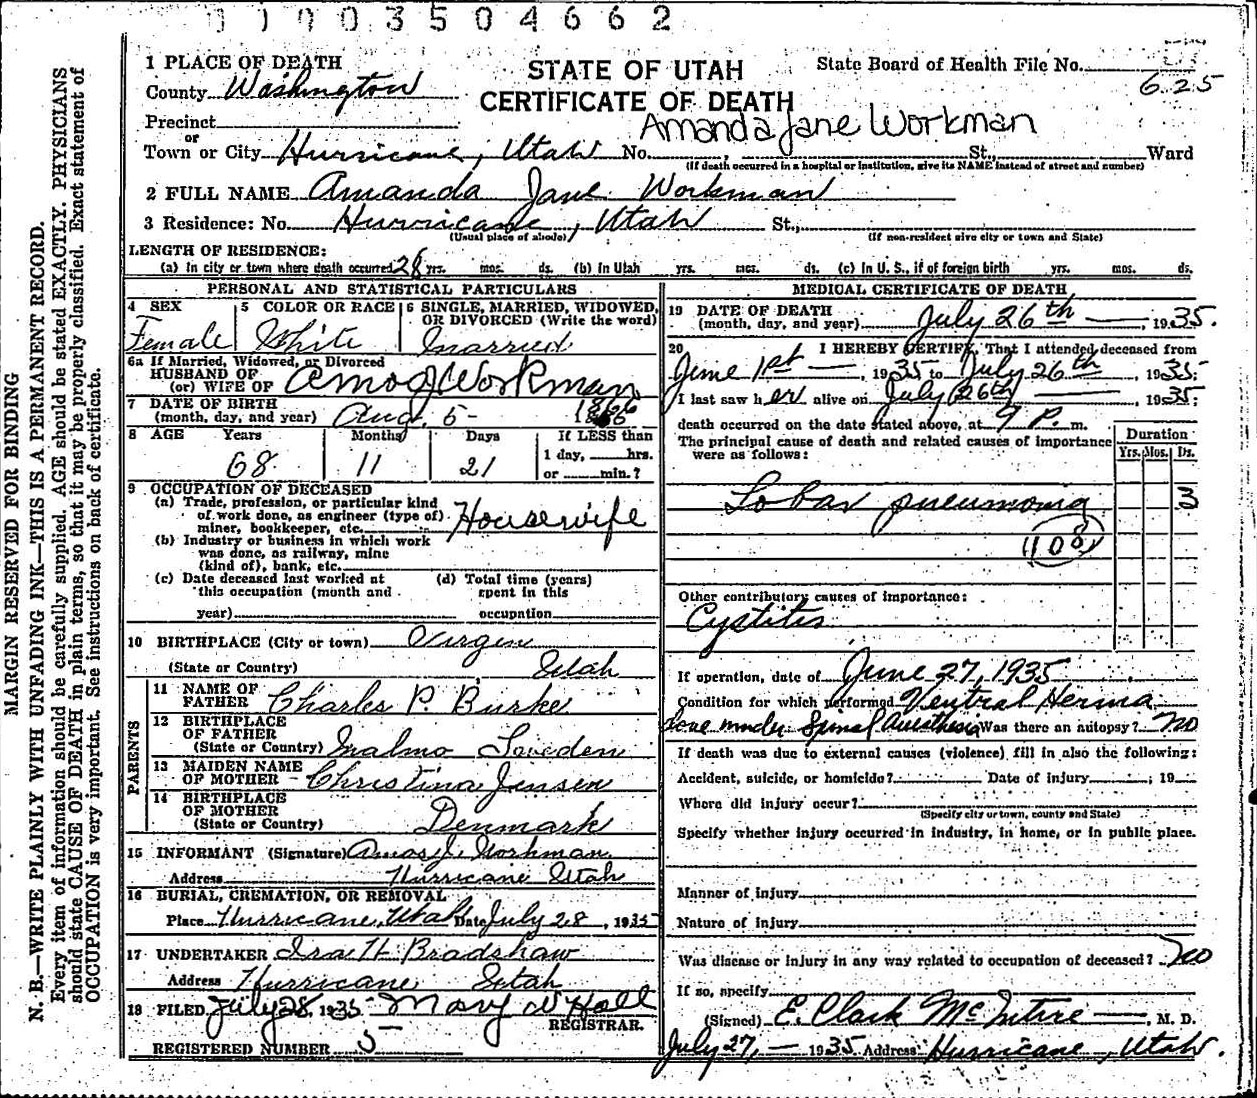 1 1 0 0 3 5 0 4 6 6 2
STATE OF UTAH
CERTIFICATE OF DEATH
State Board of Health File No.
625
Amanda Jane Workman
1 PLACE OF DEATH
County Washington
Precinct
or
Town or City Hurricane, Utah No. , St., Ward
(If death occurred in a hospital or institution, give its NAME instead of street and number)
2 FULL NAME Amanda Jane Workman
3 Residence: No. Hurricane, Utah St.,
(Usual place of abode) (If non-resident give city or town and State)
LENGTH OF RESIDENCE:
(a) In city or town where death occurred 28 yrs. mos. ds. (b) In Utah yrs. mos. ds. (c) In U. S., if of foreign birth yrs. mos. ds.
PERSONAL AND STATISTICAL PARTICULARS
4 SEX
Female
5 COLOR OR RACE
White
6 SINGLE, MARRIED, WIDOWED,
OR DIVORCED (Write the word)
Married
6a If Married, Widowed, or Divorced
HUSBAND OF
(or) WIFE OF Amos J Workman
7 DATE OF BIRTH
(month, day, and year) Aug. 5- 1866
8 AGE Years Months Days If LESS than
1 day, hrs.
or min.?
68 11 21
9 OCCUPATION OF DECEASED
(a) Trade, profession, or particular kind
of work done, as engineer (type of)
miner, bookkeeper, etc. Housewife
(b) Industry or business in which work
was done, as railway, mine
(kind of), bank, etc.
(c) Date deceased last worked at
this occupation (month and
year)
(d) Total time (years)
spent in this
occupation
10 BIRTHPLACE (City or town) Virgin
(State or Country) Utah
PARENTS
11 NAME OF
FATHER Charles P. Burke
12 BIRTHPLACE
OF FATHER
(State or Country) Malmo Sweden
13 MAIDEN NAME
OF MOTHER Christina Jensen
14 BIRTHPLACE
OF MOTHER
(State or Country) Denmark
15 INFORMANT (Signature) Amos J. Workman
Address Hurricane Utah
16 BURIAL, CREMATION, OR REMOVAL
Place Hurricane, Utah Date July 28, 1935
17 UNDERTAKER Ira H. Bradshaw
Address Hurricane Utah
18 FILED July 28, 1935 Mary W Hall
REGISTRAR.
REGISTERED NUMBER 5
MEDICAL CERTIFICATE OF DEATH
19 DATE OF DEATH
(month, day, and year) July 26th, 1935.
20 I HEREBY CERTIFY, That I attended deceased from
June 1st, 1935 to July 26th, 1935;
I last saw her alive on July 26th, 1935;
death occurred on the date stated above, at 9 P. m.
The principal cause of death and related causes of importance
were as follows:
Duration
Yrs. Mos. Ds.
Lobar pneumonia 3
(108)
Other contributory causes of importance:
Cystitis
If operation, date of June 27, 1935
Condition for which performed Ventral Hernia
done under Spinal Anesthesia Was there an autopsy? No
If death was due to external causes (violence) fill in also the following:
Accident, suicide, or homicide? Date of injury ; 19
Where did injury occur?
(Specify city or town, county and State)
Specify whether injury occurred in industry, in home, or in public place.
Manner of injury
Nature of injury
Was disease or injury in any way related to occupation of deceased? No
If so, specify
(Signed) E. Clark McIntire, M. D.
July 27, 1935 Address Hurricane, Utah.
MARGIN RESERVED FOR BINDING
N. B.—WRITE PLAINLY WITH UNFADING INK—THIS IS A PERMANENT RECORD.
Every item of information should be carefully supplied. AGE should be stated EXACTLY. PHYSICIANS
should state CAUSE OF DEATH in plain terms, so that it may be properly classified. Exact statement of
OCCUPATION is very important. See instructions on back of certificate.